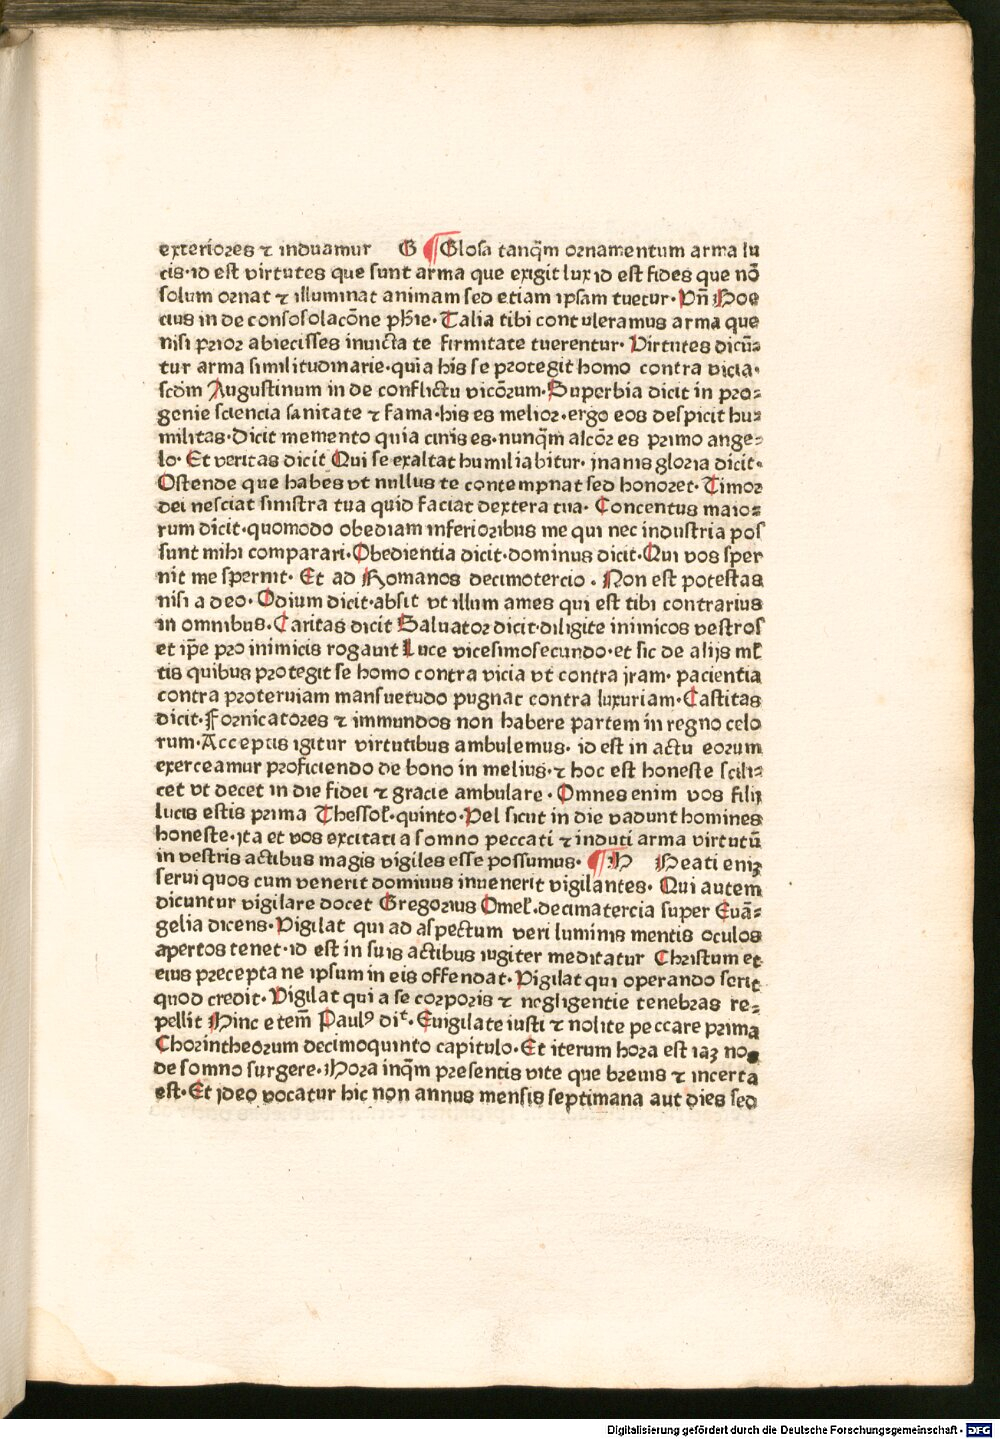 exteriores ⁊ induamur G ¶ Glosa tanq̃m ornamentum arma lu
cis·id est virtutes que sunt arma que exigit lux id est fides que nō
solum ornat ⁊ illuminat animam sed etiam ipsam tuetur·Vñ Boe
cius in de consosolacōne ph̄ie·Talia tibi contuleramus arma que
nisi prior abiecisses inuicta te firmitate tuerentur·Virtutes dicū⸗
tur arma similitudinarie·quia his se protegit homo contra vicia·
scd̄m Augustinum in de conflictu vicōrum·Superbia dicit in pro⸗
genie sciencia sanitate ⁊ fama·his es melior·ergo eos despicit hu⸗
militas·Dicit memento quia cinis es·nunq̃m alcōr es primo ange⸗
lo·Et veritas dicit Qui se exaltat humiliabitur·jnanis gloria dicit·
Ostende que habes vt nullus te contempnat sed honoret·Timor
dei nesciat sinistra tua quid faciat dextera tua·Concentus maio⸗
rum dicit·quomodo obediam inferioribus me qui nec industria pos
sunt mihi comparari·Obedientia dicit·dominus dicit·Qui vos sper
nit me spernit·Et ad Romanos decimotercio·Non est potestas
nisi a deo·Odium dicit·absit vt illum ames qui est tibi contrarius
in omnibus·Caritas dicit Saluator dicit·diligite inimicos vestros
et ip̄e pro inimicis rogauit Luce vicesimosecundo·et sic de alijs ml̄
tis quibus protegit se homo contra vicia vt contra jram·pacientia
contra proteruiam mansuetudo pugnat contra luxuriam·Castitas
dicit·Fornicatores ⁊ immundos non habere partem in regno celo
rum·Acceptis igitur virtutibus ambulemus·id est in actu eorum
exerceamur proficiendo de bono in melius·⁊ hoc est honeste scili⸗
cet vt decet in die fidei ⁊ gracie ambulare·Omnes enim vos filij
lucis estis prima Thessol̄·quinto·Vel sicut in die vadunt homines
honeste·jta et vos excitati a somno peccati ⁊ induti arma virtutū
in vestris actibus magis vigiles esse possumus· ¶ H Beati eniꝫ
serui quos cum venerit dominus inuenerit vigilantes·Qui autem
dicuntur vigilare docet Gregorius Omel̄·decimatercia super Euā⸗
gelia dicens·Vigilat qui ad aspectum veri luminis mentis oculos
apertos tenet·id est in suis actibus iugiter meditatur Christum et
eius precepta ne ipsum in eis offendat·Vigilat qui operando serit
quod credit·Vigilat qui a se corporis ⁊ negligentie tenebras re⸗
pellit Hinc etem̄ Paulꝰ di͛t·Euigilate iusti ⁊ nolite peccare prima
Chorintheorum decimoquinto capitulo·Et iterum hora est iaꝫ nos
de somno surgere·Hora inq̃m presentis vite que breuis ⁊ incerta
est·Et jdeo vocatur hic non annus mensis septimana aut dies sed
Digitalisierung gefördert durch die Deutsche Forschungsgemeinschaft - DFG